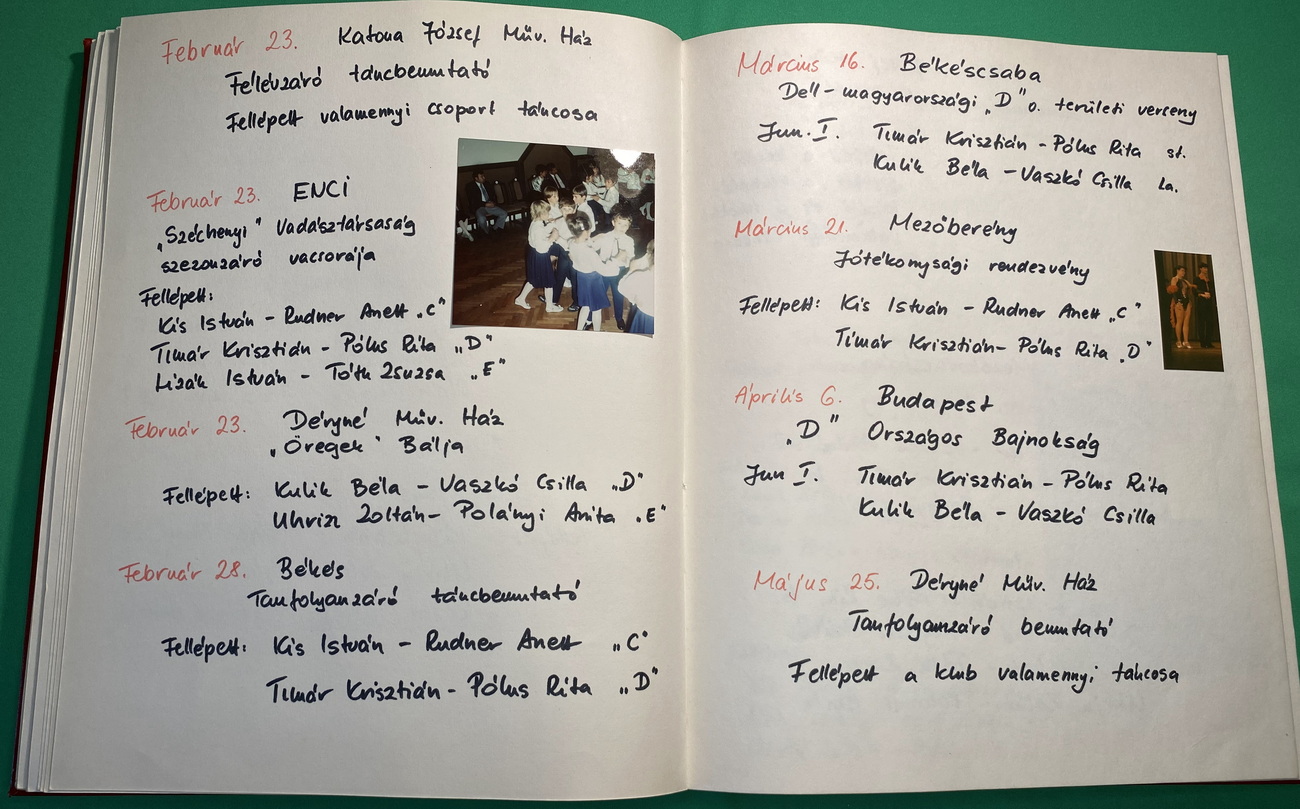 Február 23. Katona József Műv. Ház
Félévzáró táncbemutató
Fellépett valamennyi csoport táncosa
Február 23. ENCI
„Széchenyi" Vadásztársaság
szezonzáró vacsorája
Fellépett:
Kis István - Rudner Anett „C"
Timár Krisztián - Pólus Rita „D"
Lizák István - Tóth Zsuzsa „E"
Február 23. Déryné Műv. Ház
„Öregek" Bálja
Fellépett: Kulik Béla - Vaszkó Csilla „D"
Uhrin Zoltán - Polányi Anita „E"
Február 28. Békés
Tanfolyamzáró táncbemutató
Fellépett: Kis István - Rudner Anett „C"
Timár Krisztián - Pólus Rita „D"
Március 16. Békéscsaba
Dél-magyarországi „D" o. területi verseny
Jun. I. Timár Krisztián - Pólus Rita st.
Kulik Béla - Vaszkó Csilla la.
Március 21. Mezőberény
Jótékonysági rendezvény
Fellépett: Kis István - Rudner Anett „C"
Timár Krisztián - Pólus Rita „D"
Április 6. Budapest
„D" Országos Bajnokság
Jun I. Timár Krisztián - Pólus Rita
Kulik Béla - Vaszkó Csilla
Május 25. Déryné Műv. Ház
Tanfolyamzáró bemutató
Fellépett a klub valamennyi táncosa